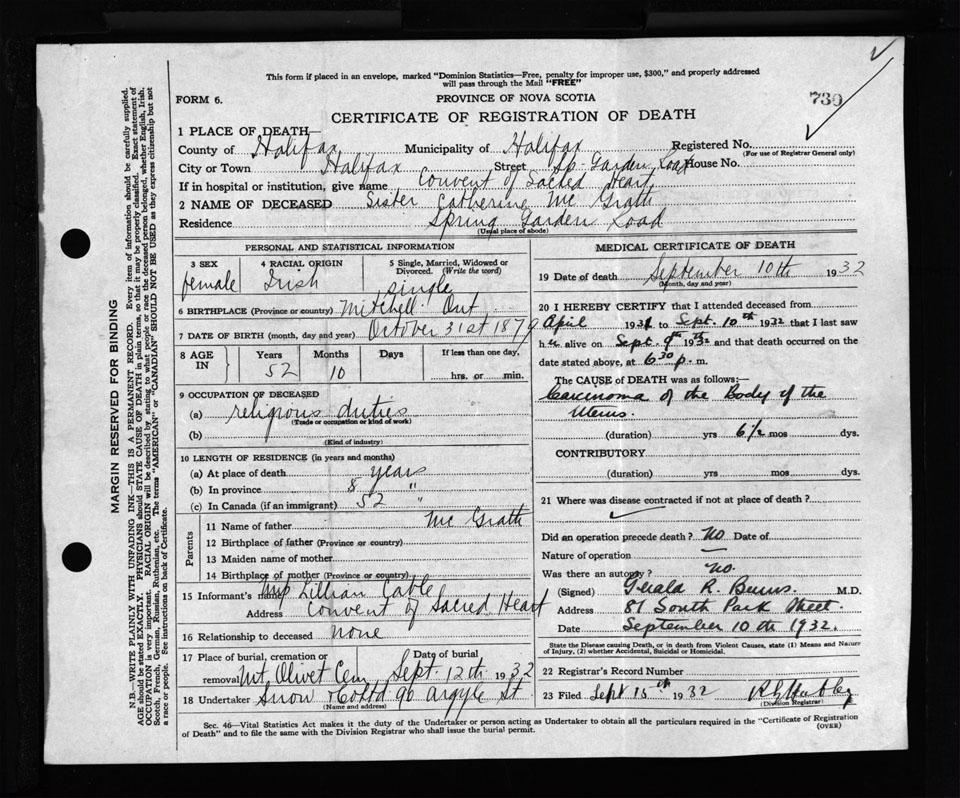 This form if placed in an envelope, marked "Dominion Statistics—Free, penalty for improper use, $300," and properly addressed
will pass through the Mail "FREE"
FORM 6.
PROVINCE OF NOVA SCOTIA
730
CERTIFICATE OF REGISTRATION OF DEATH
1 PLACE OF DEATH—
County of Halifax Municipality of Halifax Registered No.
(For use of Registrar General only)
City or Town Halifax Street Sp. Garden Road House No.
If in hospital or institution, give name Convent of Sacred Heart
2 NAME OF DECEASED Sister Catherine Mc Grath
Residence Spring Garden Road
(Usual place of abode)
PERSONAL AND STATISTICAL INFORMATION
3 SEX 4 RACIAL ORIGIN 5 Single, Married, Widowed or
Divorced. (Write the word)
female Irish single
6 BIRTHPLACE (Province or country) Mitchell Ont.
7 DATE OF BIRTH (month, day and year) October 31st 1879
8 AGE IN Years Months Days If less than one day,
52 10 hrs. or min.
9 OCCUPATION OF DECEASED
(a) religious duties
(Trade or occupation or kind of work)
(b)
(Kind of industry)
10 LENGTH OF RESIDENCE (in years and months)
(a) At place of death 8 years
(b) In province 8 "
(c) In Canada (if an immigrant) 52 "
Parents
11 Name of father Mc Grath
12 Birthplace of father (Province or country)
13 Maiden name of mother
14 Birthplace of mother (Province or country)
15 Informant's name Lillian Cable
Address Convent of Sacred Heart
16 Relationship to deceased none
17 Place of burial, cremation or Date of burial
removal Mt. Olivet Cem Sept. 12th 1932
18 Undertaker Snow & Co Ltd 90 Argyle St
(Name and address)
MEDICAL CERTIFICATE OF DEATH
19 Date of death September 10th 1932
(Month, day and year)
20 I HEREBY CERTIFY that I attended deceased from
April 1931 to Sept. 10th 1932 that I last saw
her alive on Sept. 9th 1932 and that death occurred on the
date stated above, at 6 30 p. m.
The CAUSE of DEATH was as follows:—
Carcinoma of the Body of the
Uterus.
(duration) yrs 6 1/2 mos dys.
CONTRIBUTORY
(duration) yrs mos dys.
21 Where was disease contracted if not at place of death?
Did an operation precede death? No Date of
Nature of operation —
Was there an autopsy? No.
(Signed) Gerald R. Burns. M.D.
Address 81 South Park Street.
Date September 10th 1932.
State the Disease causing Death, or in death from Violent Causes, state (1) Means and Nature
of Injury, (2) whether Accidental, Suicidal or Homicidal.
22 Registrar's Record Number
23 Filed Sept 15th 1932
(Division Registrar)
Sec. 46—Vital Statistics Act makes it the duty of the Undertaker or person acting as Undertaker to obtain all the particulars required in the "Certificate of Registration
of Death" and to file the same with the Division Registrar who shall issue the burial permit.
(OVER)
MARGIN RESERVED FOR BINDING
N.B.—WRITE PLAINLY WITH UNFADING INK—THIS IS A PERMANENT RECORD. Every item of information should be carefully supplied.
AGE should be stated EXACTLY. PHYSICIANS should STATE CAUSE OF DEATH in plain terms, so that it may be properly classified. Exact statement of
OCCUPATION is very important. RACIAL ORIGIN will be described by stating to what people or race the deceased person belonged, whether English, Irish,
Scotch, French, German, Russian, Ruthenian, etc. The terms "AMERICAN" or "CANADIAN" SHOULD NOT BE USED as they express citizenship but not
a race or people. See instructions on back of Certificate.